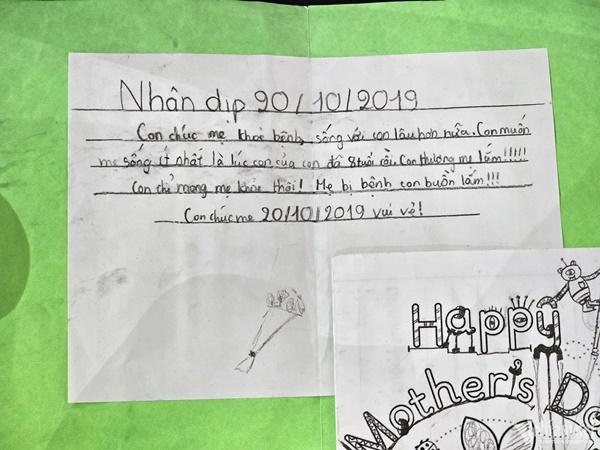 Nhân dịp 20/10/2019
Con chúc mẹ khỏe bệnh, sống với con lâu hơn nữa. Con muốn
mẹ sống ít nhất là lúc con của con đã 8 tuổi rồi. Con thương mẹ lắm!!!!!
Con chỉ mong mẹ khỏe thôi! Mẹ bị bệnh con buồn lắm!!!
Con chúc mẹ 20/10/2019 vui vẻ!
Happy
Mother's Da